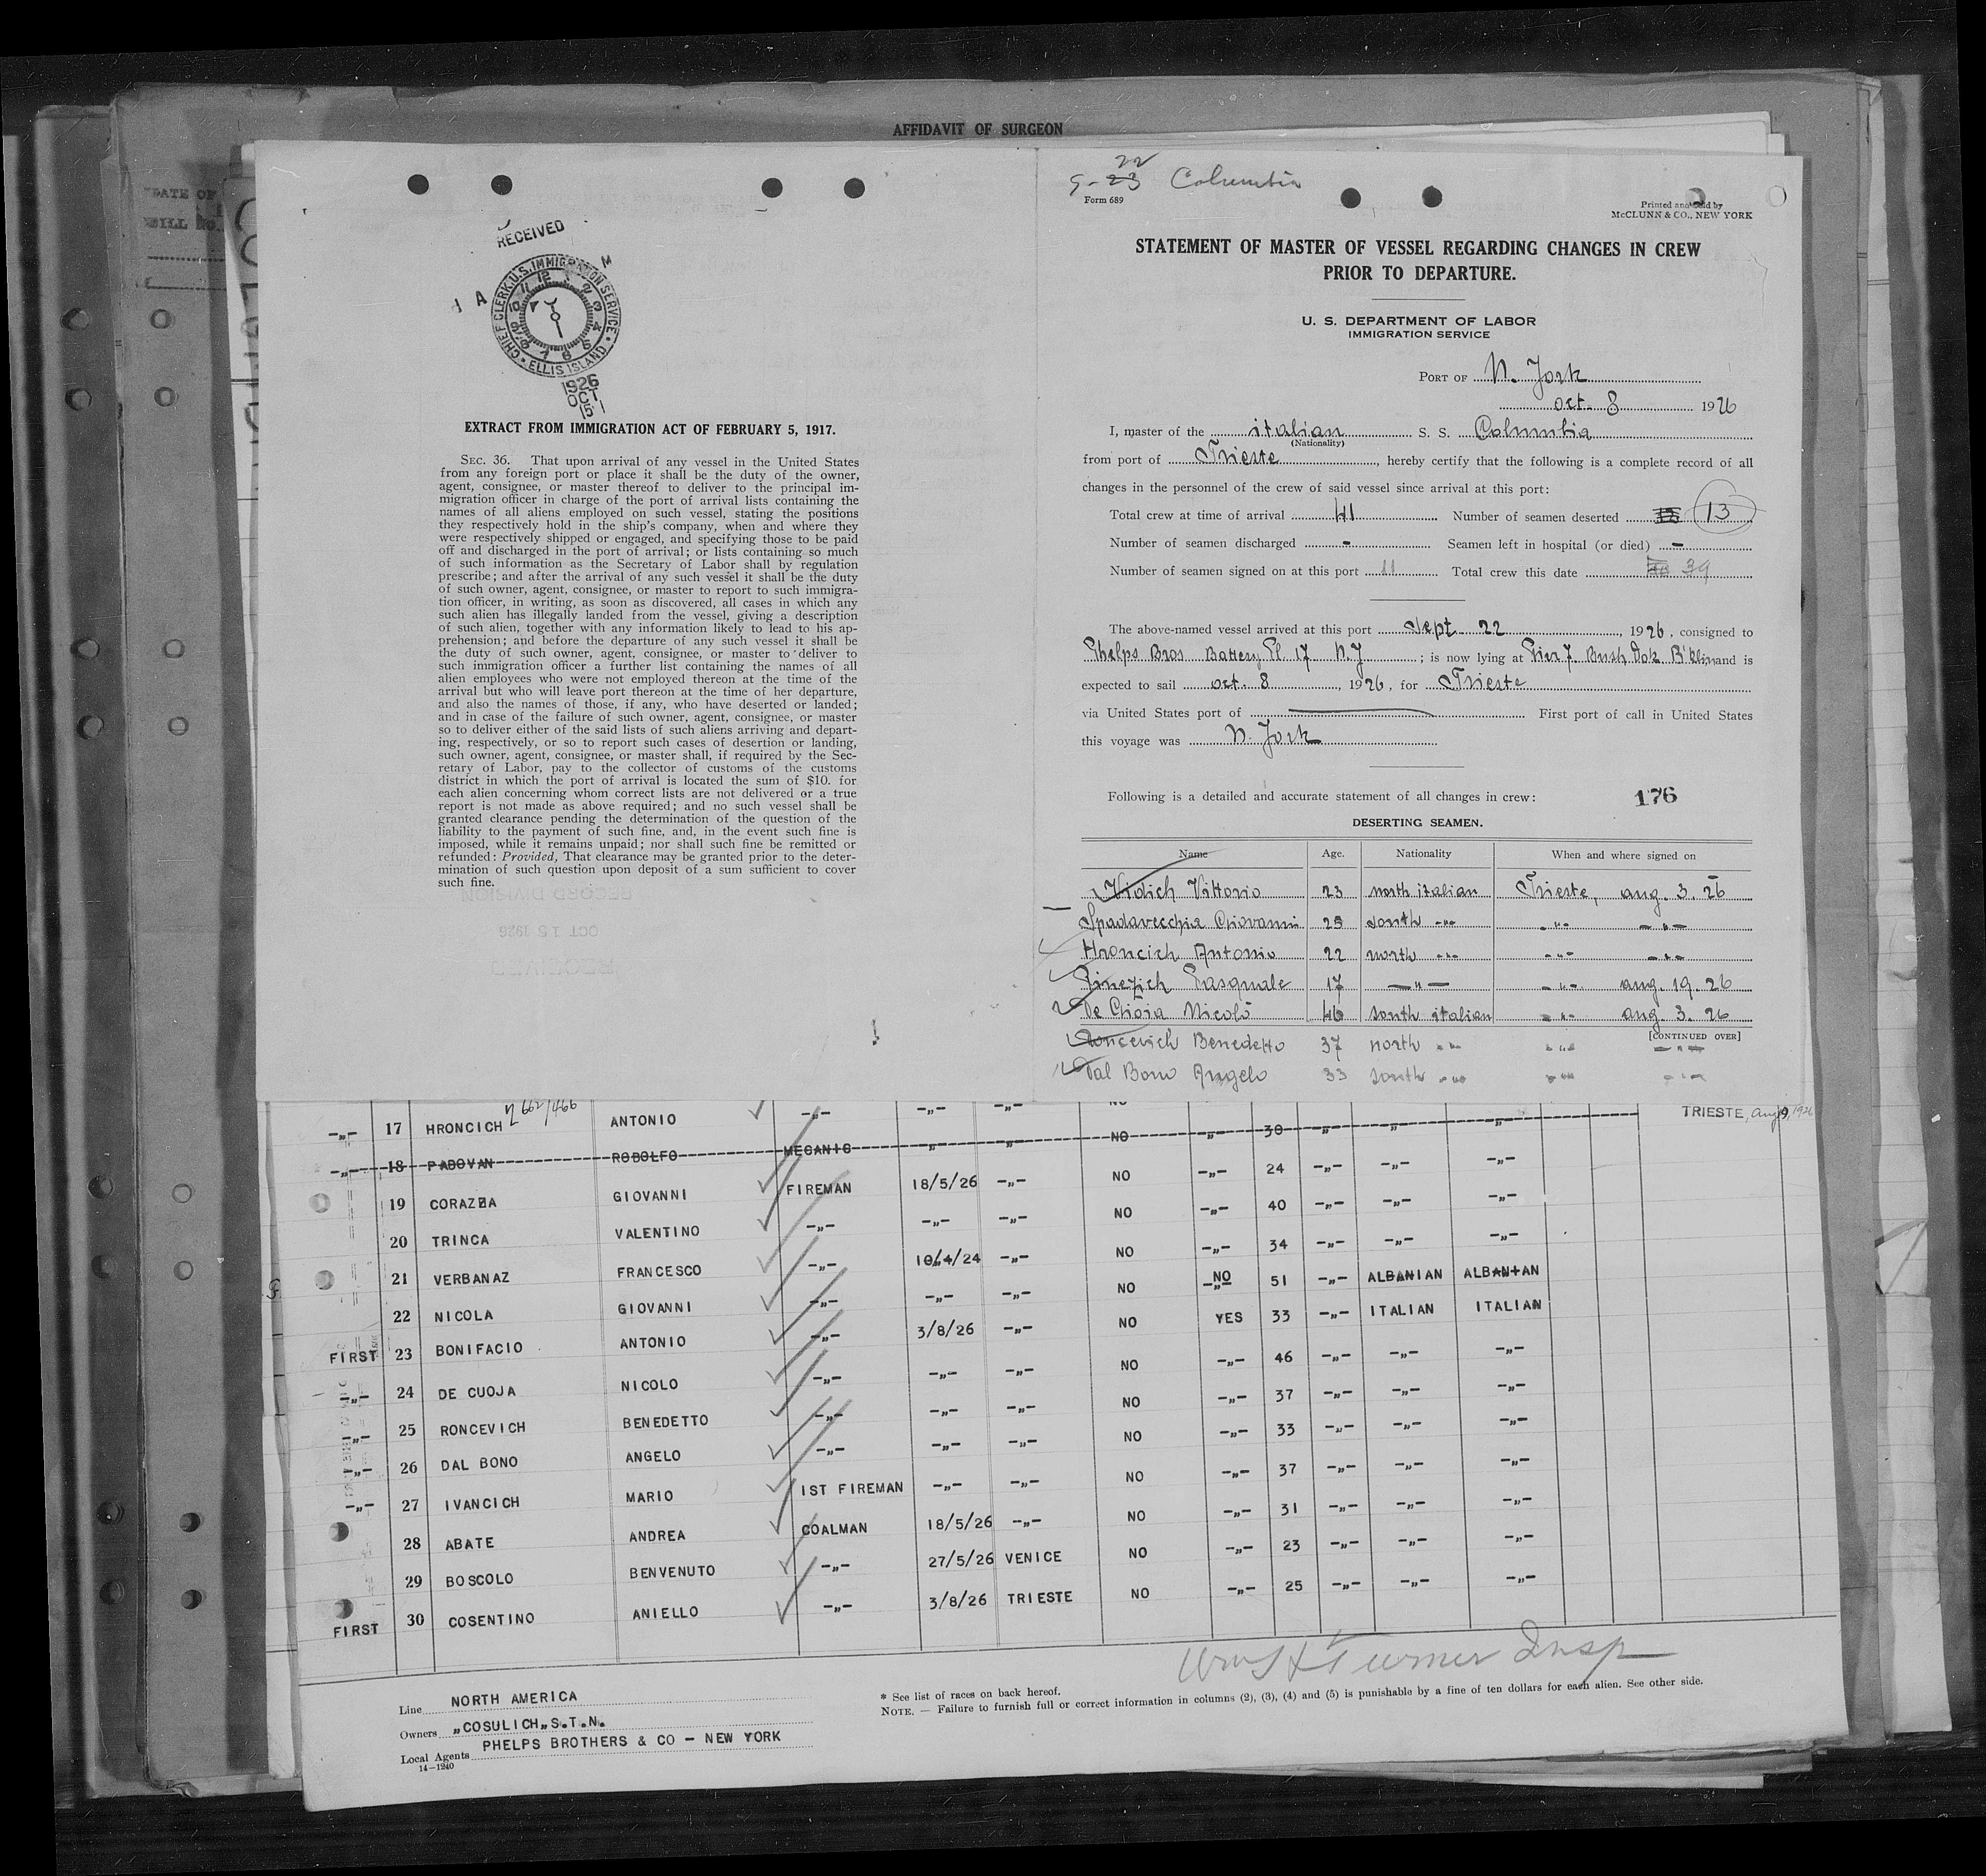 AFFIDAVIT OF SURGEON
RECEIVED
CHIEF CLERK, U.S. IMMIGRATION SERVICE
ELLIS ISLAND
1926
EXTRACT FROM IMMIGRATION ACT OF FEBRUARY 5, 1917.
SEC. 36. That upon arrival of any vessel in the United States
from any foreign port or place it shall be the duty of the owner,
agent, consignee, or master thereof to deliver to the principal im-
migration officer in charge of the port of arrival lists containing the
names of all aliens employed on such vessel, stating the positions
they respectively hold in the ship's company, when and where they
were respectively shipped or engaged, and specifying those to be paid
off and discharged in the port of arrival; or lists containing so much
of such information as the Secretary of Labor shall by regulation
prescribe; and after the arrival of any such vessel it shall be the duty
of such owner, agent, consignee, or master to report to such immigra-
tion officer, in writing, as soon as discovered, all cases in which any
such alien has illegally landed from the vessel, giving a description
of such alien, together with any information likely to lead to his ap-
prehension; and before the departure of any such vessel it shall be
the duty of such owner, agent, consignee, or master to deliver to
such immigration officer a further list containing the names of all
alien employees who were not employed thereon at the time of the
arrival but who will leave port thereon at the time of her departure,
and also the names of those, if any, who have deserted or landed;
and in case of the failure of such owner, agent, consignee, or master
so to deliver either of the said lists of such aliens arriving and depart-
ing, respectively, or so to report such cases of desertion or landing,
such owner, agent, consignee, or master shall, if required by the Sec-
retary of Labor, pay to the collector of customs of the customs
district in which the port of arrival is located the sum of $10. for
each alien concerning whom correct lists are not delivered or a true
report is not made as above required; and no such vessel shall be
granted clearance pending the determination of the question of the
liability to the payment of such fine, and, in the event such fine is
imposed, while it remains unpaid; nor shall such fine be remitted or
refunded: Provided, That clearance may be granted prior to the deter-
mination of such question upon deposit of a sum sufficient to cover
such fine.
RECORD DIVISION
OCT 15 1926
RECEIVED
22
9-23 Columbia
Form 689
Printed and Sold by
McCLUNN & CO., NEW YORK
STATEMENT OF MASTER OF VESSEL REGARDING CHANGES IN CREW
PRIOR TO DEPARTURE.
U. S. DEPARTMENT OF LABOR
IMMIGRATION SERVICE
PORT OF N. York
oct. 8 1926
I, master of the italian S. S. Columbia
(Nationality)
from port of Trieste, hereby certify that the following is a complete record of all
changes in the personnel of the crew of said vessel since arrival at this port:
Total crew at time of arrival 41 Number of seamen deserted 13
Number of seamen discharged - Seamen left in hospital (or died) -
Number of seamen signed on at this port 11 Total crew this date 39
The above-named vessel arrived at this port Sept 22, 1926, consigned to
Phelps Bros Battery Pl. 17 N.Y; is now lying at Pier 7. Bush Dok B'klin and is
expected to sail oct. 8, 1926, for Trieste
via United States port of — First port of call in United States
this voyage was N. York
Following is a detailed and accurate statement of all changes in crew: 176
DESERTING SEAMEN.
Name Age. Nationality When and where signed on
Vidich Vittorio 23 north italian Trieste, aug. 3. 26
Spadavecchia Giovanni 25 south -"- -"- -"-
Hroncich Antonio 22 north -"- -"- -"-
Pinezich Pasquale 17 -"- -"- aug. 19. 26
De Chioia Nicolò 46 south italian -"- aug. 3. 26
[CONTINUED OVER]
Roncevich Benedetto 37 north -"- -"- -"-
Dal Bono Angelo 33 south -"- -"- -"-
-"- 17 HRONCICH ANTONIO -"- -"- -"- NO TRIESTE, Aug 9, 1926
-"- 18 PADOVAN RODOLFO MECANIC " " NO -"- 30 -"- " "
19 CORAZZA GIOVANNI FIREMAN 18/5/26 -"- NO -"- 24 -"- -"- -"-
20 TRINCA VALENTINO -"- -"- -"- NO -"- 40 -"- -"- -"-
21 VERBANAZ FRANCESCO -"- 10/4/24 -"- NO -"- 34 -"- -"- -"-
22 NICOLA GIOVANNI -"- -"- -"- NO NO 51 -"- ALBANIAN ALBANIAN
FIRST 23 BONIFACIO ANTONIO -"- 3/8/26 -"- NO YES 33 -"- ITALIAN ITALIAN
-"- 24 DE CUOJA NICOLO -"- -"- -"- NO -"- 46 -"- -"- -"-
-"- 25 RONCEVICH BENEDETTO -"- -"- -"- NO -"- 37 -"- -"- -"-
-"- 26 DAL BONO ANGELO -"- -"- -"- NO -"- 33 -"- -"- -"-
-"- 27 IVANCICH MARIO 1ST FIREMAN -"- -"- NO -"- 37 -"- -"- -"-
28 ABATE ANDREA COALMAN 18/5/26 -"- NO -"- 31 -"- -"- -"-
29 BOSCOLO BENVENUTO -"- 27/5/26 VENICE NO -"- 23 -"- -"- -"-
FIRST 30 COSENTINO ANIELLO -"- 3/8/26 TRIESTE NO -"- 25 -"- -"- -"-
Turner Insp
Line NORTH AMERICA
Owners "COSULICH" S.T.N.
Local Agents PHELPS BROTHERS & CO - NEW YORK
14-1240
* See list of races on back hereof.
NOTE. — Failure to furnish full or correct information in columns (2), (3), (4) and (5) is punishable by a fine of ten dollars for each alien. See other side.